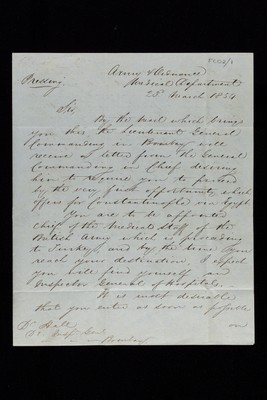 Pressing
Army & Ordnance
Medical Department
23rd March 1854
Sir
By the Mail which brings
you this the Lieutenant General
Commanding in Bombay will
receive a letter from the General
Commanding in Chief desiring
him to require you to proceed
by the very first opportunity which
offers for Constantinople via Egypt
You are to be appointed
chief of the Medical Staff of the
British Army which is proceeding
to Turkey and by the time you
reach your destination, I expect
you will find yourself an
Inspector General of Hospitals.
It is most desirable
that you enter as soon as possible
on
Dr Hall
Dy. Insp. Genl.
Bombay